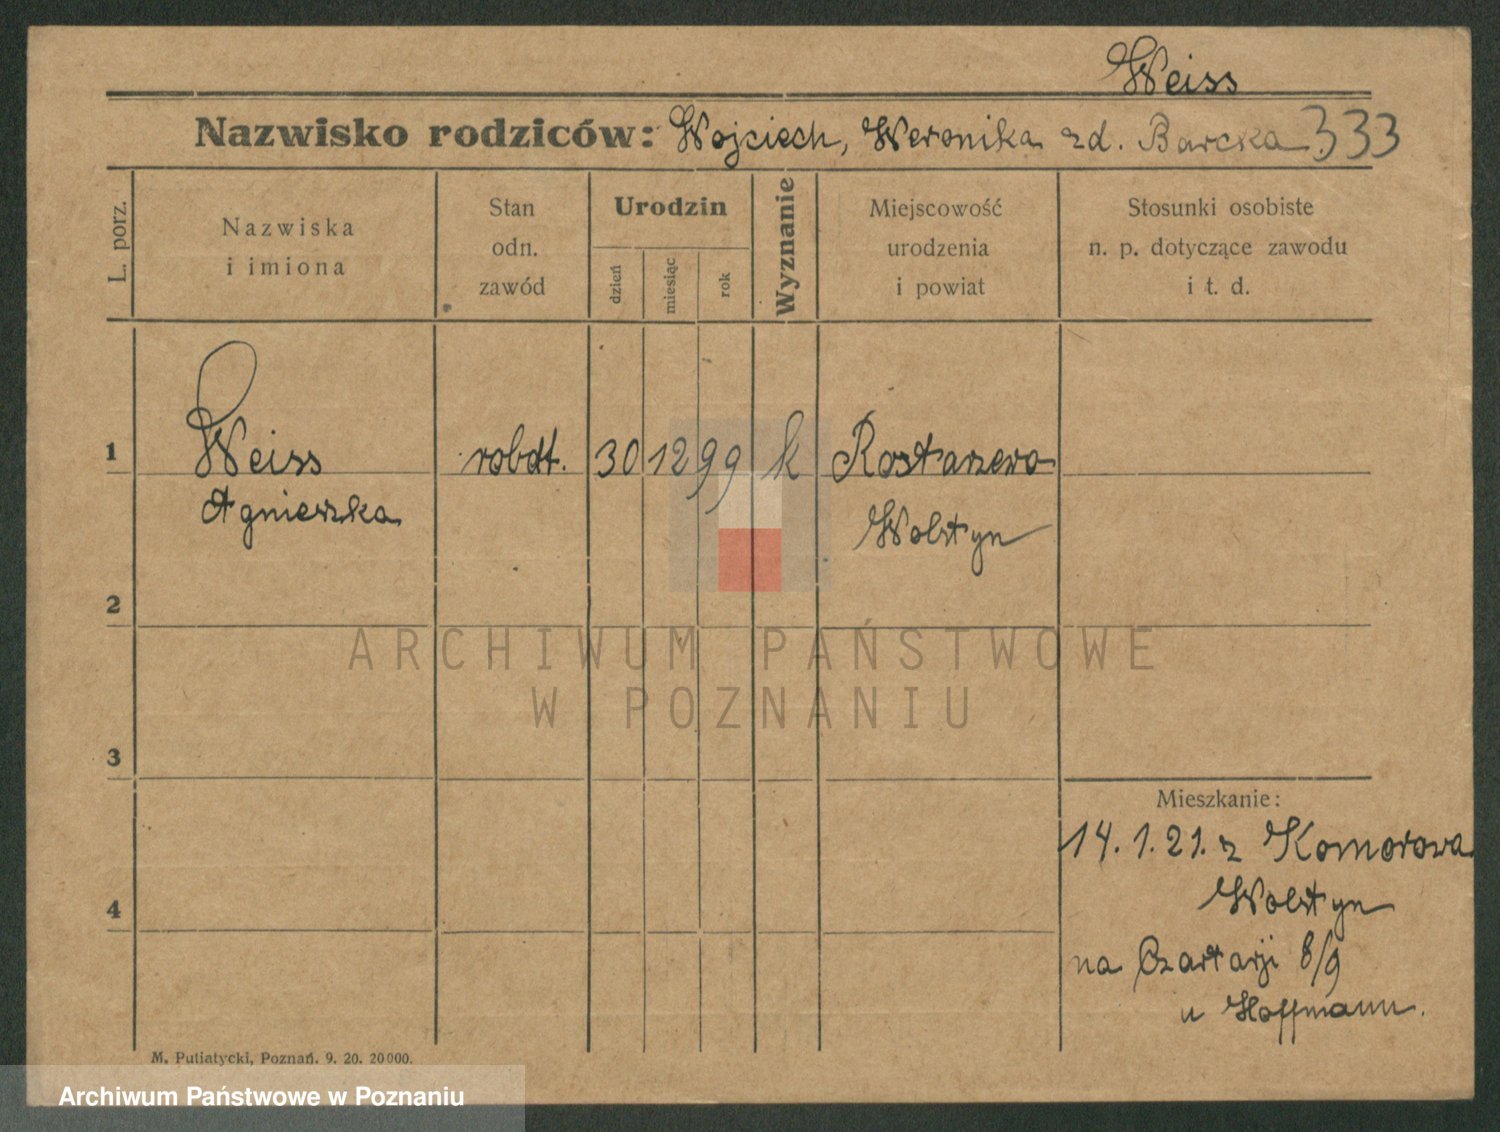 Weiss
Nazwisko rodziców: Wojciech, Weronika zd. Barcka 333
L. porz.
Nazwiska
i imiona
Stan
odn.
zawód
Urodzin
dzień
miesiąc
rok
Wyznanie
Miejscowość
urodzenia
i powiat
Stosunki osobiste
n. p. dotyczące zawodu
i t. d.
1 Weiss robot. 30 12 99 k Rostarzewo
Agnieszka Wolstyn
2
ARCHIWUM PAŃSTWOWE
W POZNANIU
3
Mieszkanie:
14. 1. 21. z Komorowa
4 Wolstyn
na Czartarji 8/9
u Hoffmann.
M. Putiatycki, Poznań. 9. 20. 20000.
Archiwum Państwowe w Poznaniu